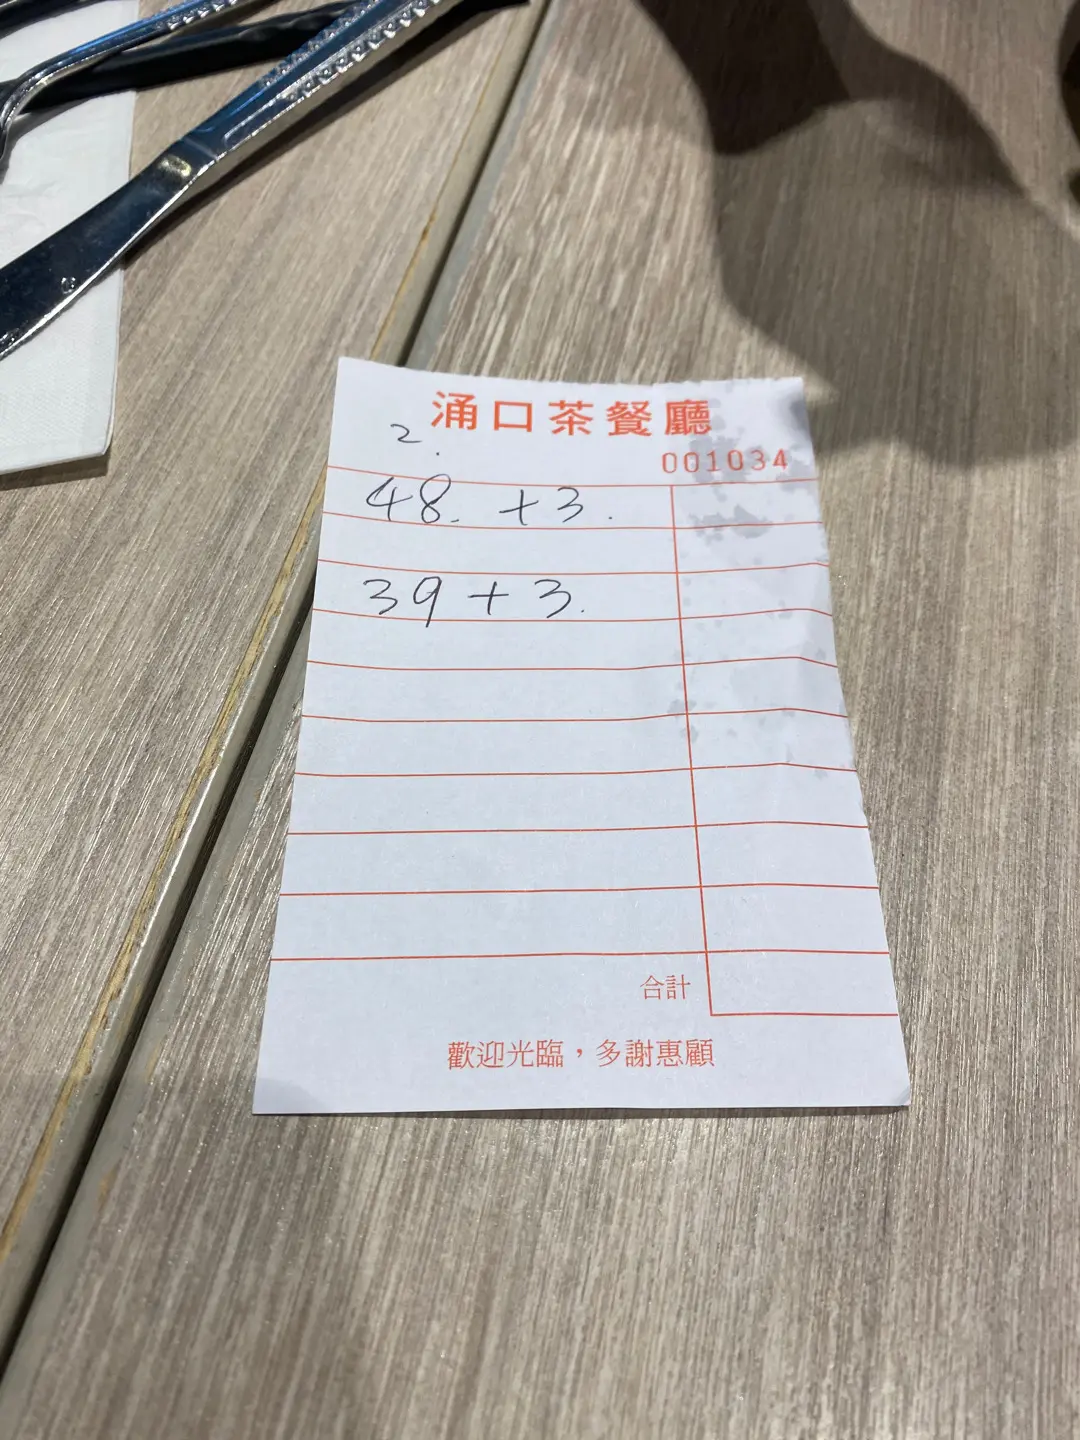 涌口茶餐廳
2.
001034
48. +3.
39 + 3.
合計
歡迎光臨，多謝惠顧